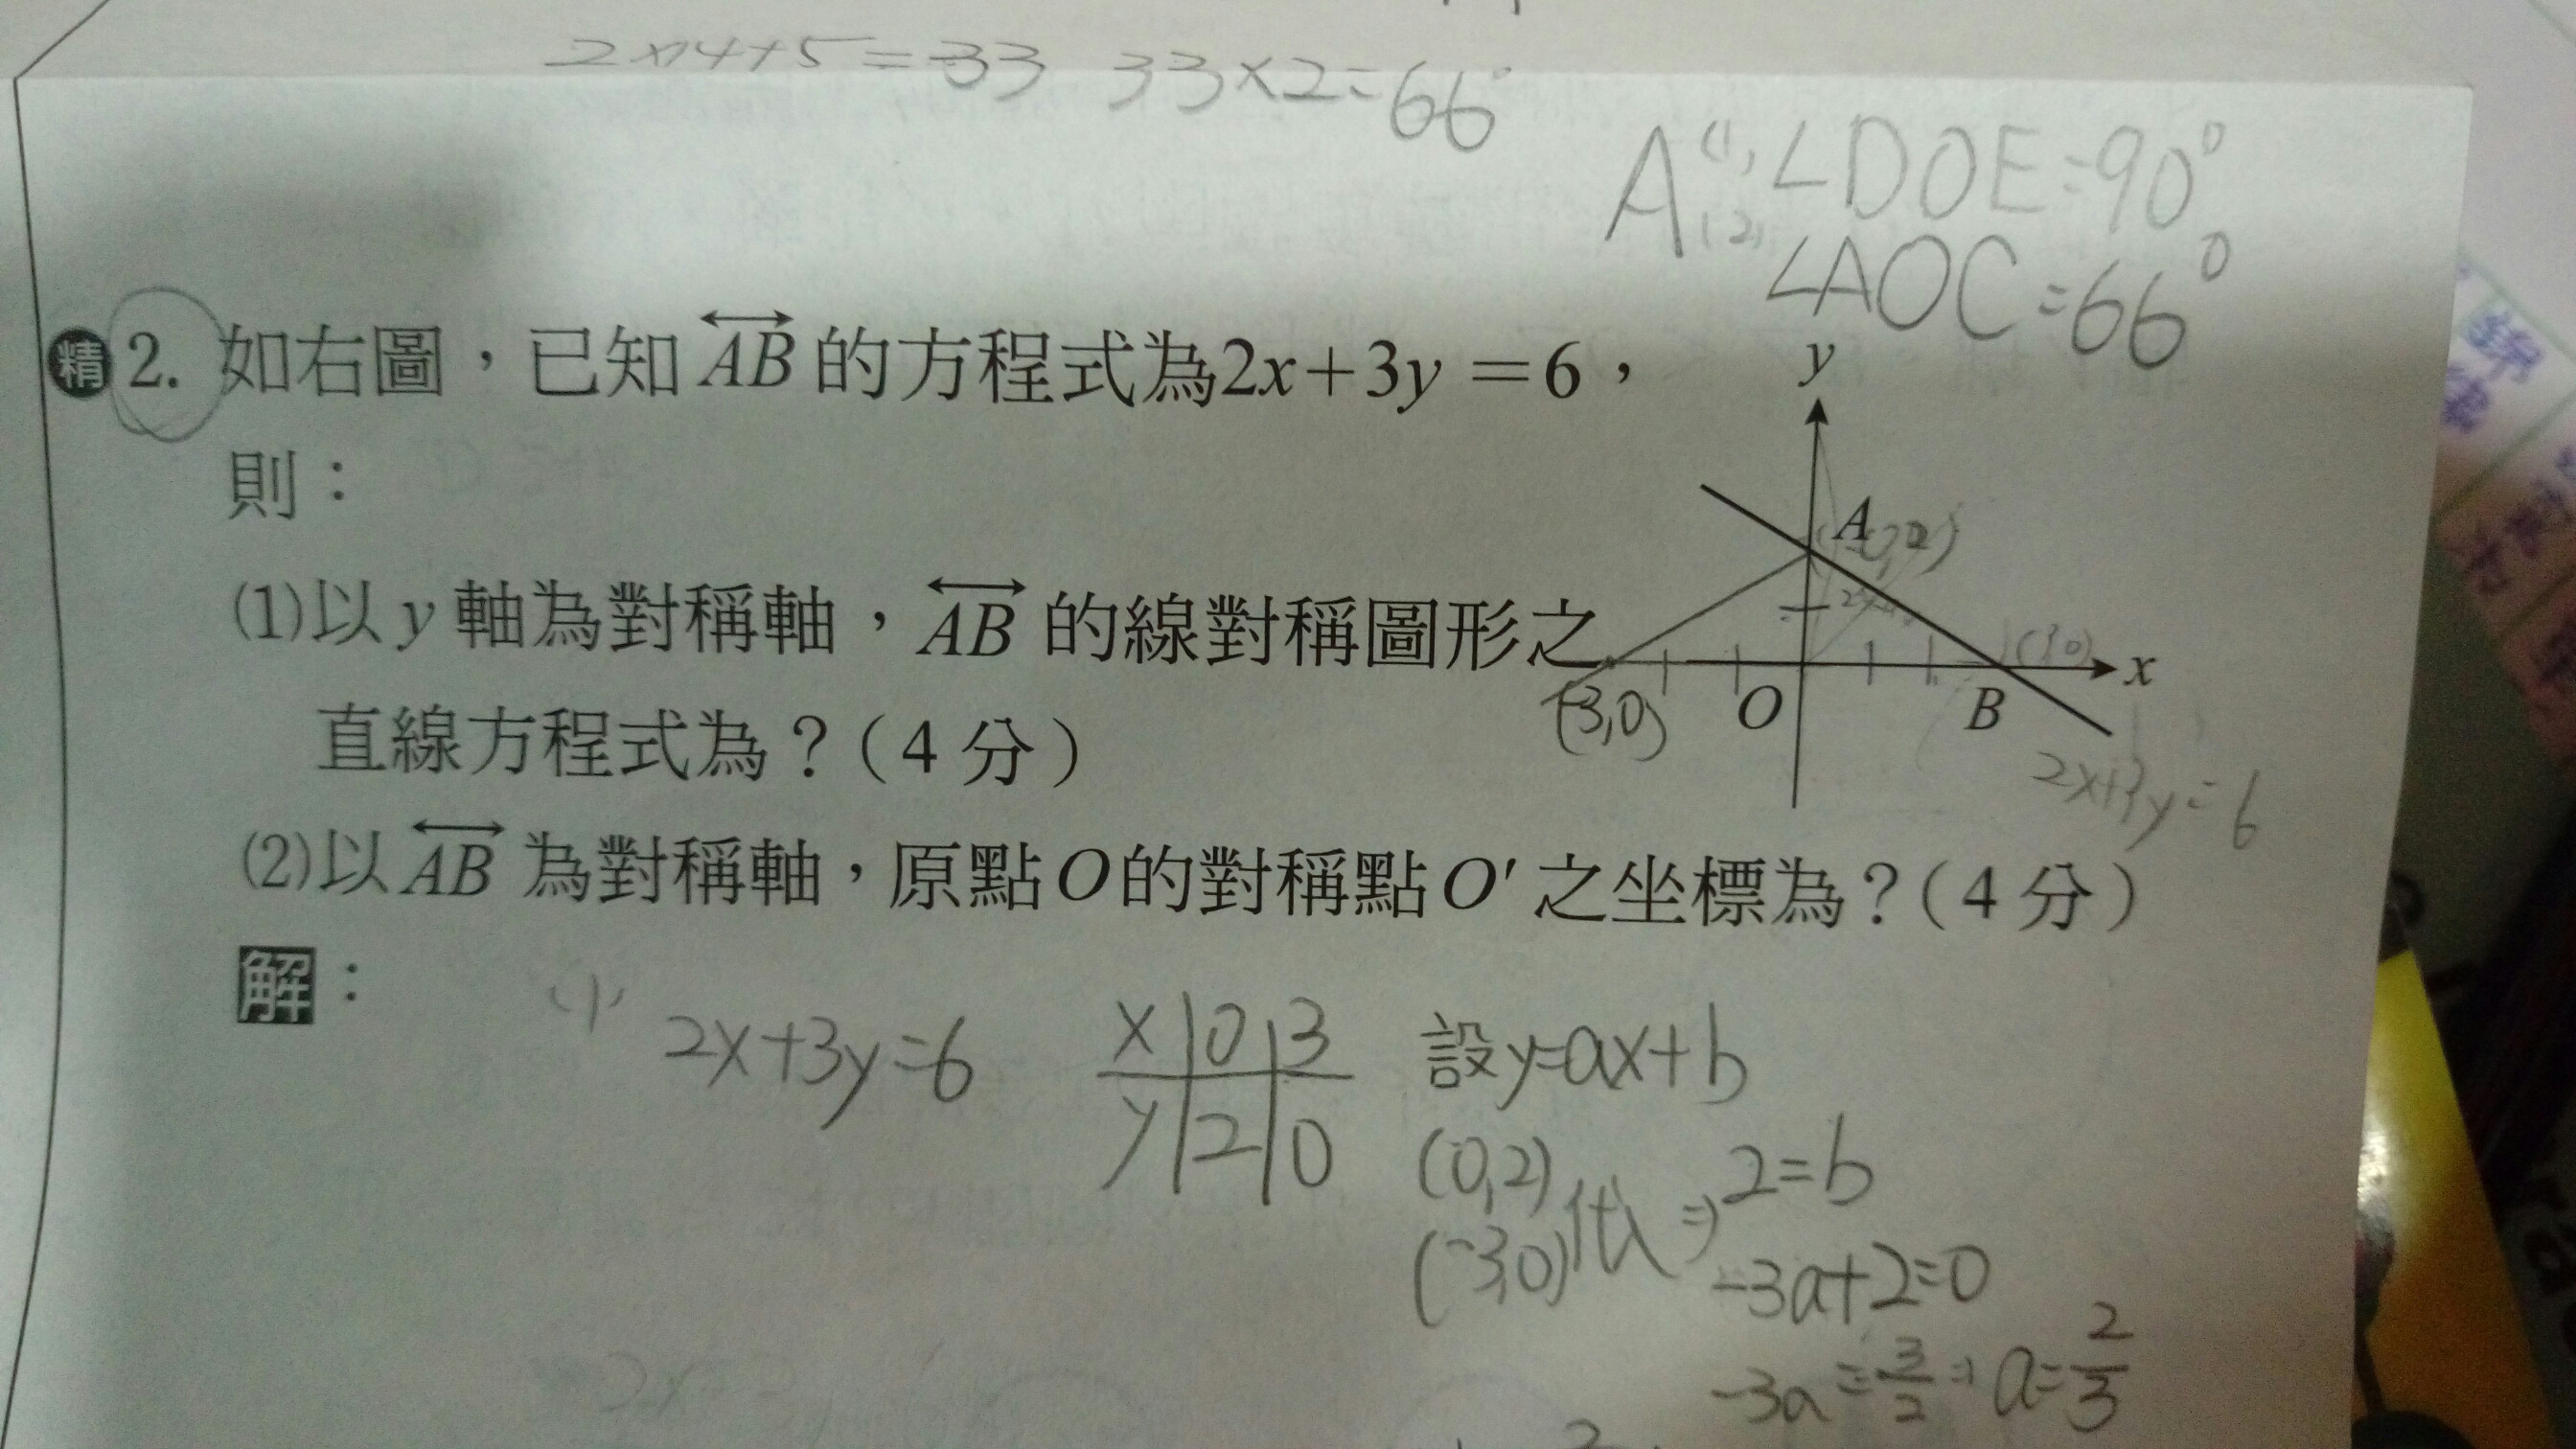 2×14+5=33 33×2=66°
A(1) ∠DOE=90°
(2) ∠AOC=66°
精 2. 如右圖，已知 AB 的方程式為2x+3y=6，
則：
(1)以 y 軸為對稱軸，AB 的線對稱圖形之
直線方程式為？(4 分)
(2)以 AB 為對稱軸，原點O的對稱點O′之坐標為？(4 分)
y
A (0,2)
(3,0)
x
(-3,0) O B
2x+3y=6
解：
(1) 2x+3y=6
x 0 3
y 2 0
設y=ax+b
(0,2)
(-3,0) 代入 ⇒ 2=b
-3a+2=0
-3a=3/2 ⇒ a=2/3